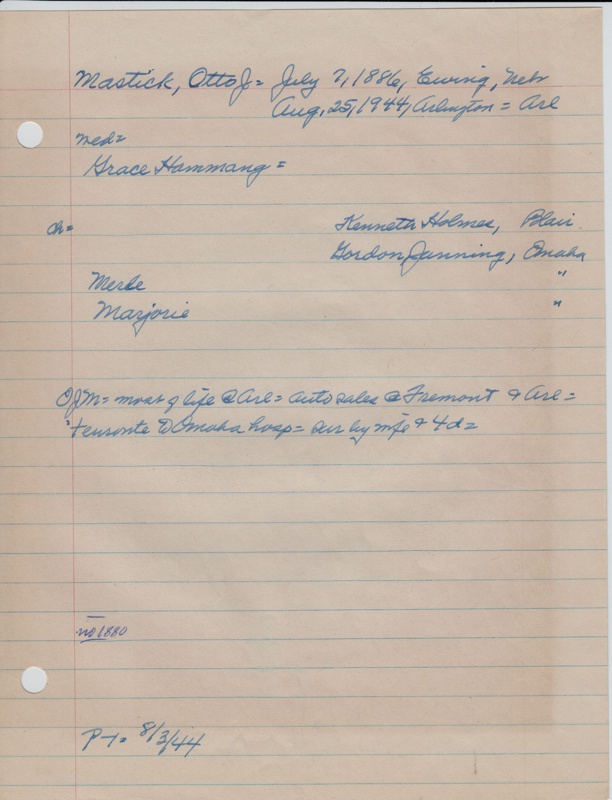 Mastick, Otto J = July 7, 1886, Ewing, Nebr
Aug, 25, 1944, Arlington = Arl
med=
Grace Hammang =
ch= Kenneth Holmes, Blair
Gordon Janning, Omaha
Merle "
Marjorie "
OJM= most of life @ Arl= auto sales @ Fremont & Arl=
Omaha hosp= sur by wife & 4d=
no 1880
P-T= 8/3/44